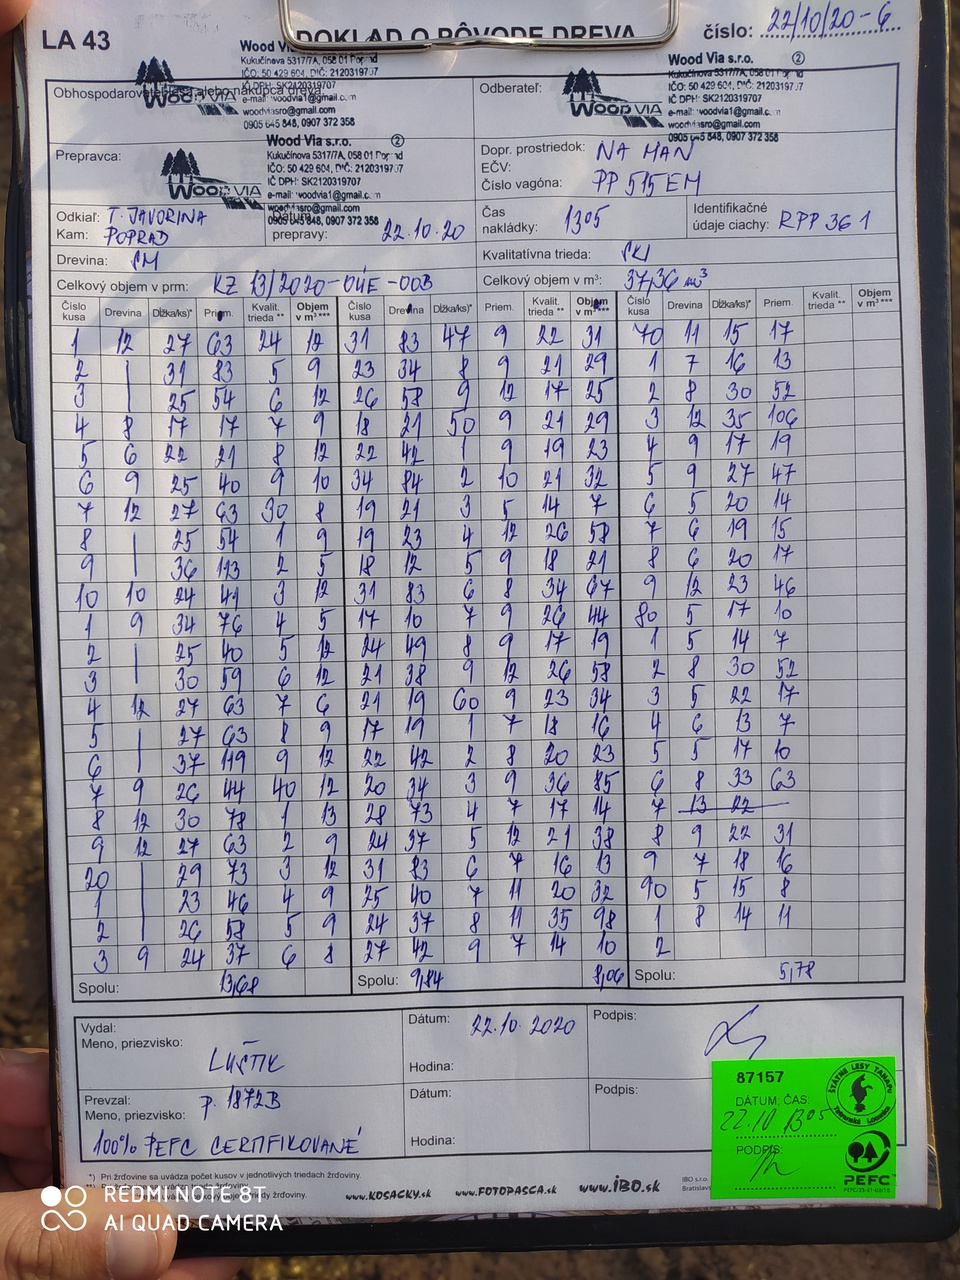 LA 43
DOKLAD O PÔVODE DREVA
číslo: 22/10/20-6
Wood Via
Kukučínova 5317/7A, 058 01 Poprad
IČO: 50 429 604, DIČ: 2120319707
IČ DPH: SK2120319707
e-mail: woodvia1@gmail.com
woodviasro@gmail.com
0905 645 848, 0907 372 358
WOOD VIA
Obhospodarovateľ lesa alebo nákupca dreva:
Odberateľ:
Wood Via s.r.o. 2
Kukučínova 5317/7A, 058 01 Poprad
IČO: 50 429 604, DIČ: 2120319707
IČ DPH: SK2120319707
e-mail: woodvia1@gmail.com
woodviasro@gmail.com
0905 645 848, 0907 372 358
WOOD VIA
Prepravca:
Wood Via s.r.o. 2
Kukučínova 5317/7A, 058 01 Poprad
IČO: 50 429 604, DIČ: 2120319707
IČ DPH: SK2120319707
e-mail: woodvia1@gmail.com
woodviasro@gmail.com
0905 645 848, 0907 372 358
WOOD VIA
Dopr. prostriedok: NA MAN
EČV:
Číslo vagóna: PP 515EM
Odkiaľ: T. JAVORINA
Kam: POPRAD
Dátum
prepravy: 22.10.20
Čas
nakládky: 1305
Identifikačné
údaje ciachy: RPP 36 1
Drevina: SM
Kvalitatívna trieda: SKI
Celkový objem v prm: KZ 13/2020-OÚE-OOB
Celkový objem v m³: 37,36 m³
Číslo kusa Drevina Dĺžka/ks)* Priem. Kvalit. trieda ** Objem v m³*** Číslo kusa Drevina Dĺžka/ks)* Priem. Kvalit. trieda ** Objem v m³*** Číslo kusa Drevina Dĺžka/ks)* Priem. Kvalit. trieda ** Objem v m³***
1 12 27 63 24 12 31 83 47 9 22 31 70 11 15 17
2 | 31 83 5 9 23 34 8 9 21 29 1 7 16 13
3 | 25 54 6 12 26 58 9 12 17 25 2 8 30 52
4 8 17 17 7 9 18 21 50 9 21 29 3 12 35 106
5 6 22 21 8 12 22 42 1 9 19 23 4 9 17 19
6 9 25 40 9 10 34 84 2 10 21 32 5 9 27 47
7 12 27 63 30 8 19 21 3 5 14 7 6 5 20 14
8 | 25 54 1 9 19 23 4 12 26 58 7 6 19 15
9 | 36 113 2 5 18 12 5 9 18 21 8 6 20 17
10 10 24 41 3 12 31 83 6 8 34 67 9 12 23 46
1 9 34 76 4 5 17 10 7 9 26 44 80 5 17 10
2 | 25 40 5 12 24 49 8 9 17 19 1 5 14 7
3 | 30 59 6 12 21 38 9 12 26 58 2 8 30 52
4 12 27 63 7 6 21 19 60 9 23 34 3 5 22 17
5 | 27 63 8 9 17 19 1 7 18 16 4 6 13 7
6 | 37 119 9 12 22 42 2 8 20 23 5 5 17 10
7 9 26 44 40 12 20 34 3 9 36 85 6 8 33 63
8 12 30 78 1 13 28 73 4 7 17 14 7 13 22
9 12 27 63 2 9 24 37 5 12 21 38 8 9 22 31
20 | 29 73 3 12 31 83 6 7 16 13 9 7 18 16
1 | 23 46 4 9 25 40 7 11 20 32 90 5 15 8
2 | 26 58 5 9 24 37 8 11 35 98 1 8 14 11
3 9 24 37 6 8 27 42 9 7 14 10 2
Spolu: 13,68 Spolu: 9,84 8,06 Spolu: 5,78
Vydal:
Meno, priezvisko: LUŠTIK
Dátum: 22.10.2020
Hodina:
Podpis:
Prevzal:
Meno, priezvisko: p. 1872B
Dátum:
Hodina:
Podpis:
100% PEFC CERTIFIKOVANÉ
87157
DÁTUM, ČAS:
22.10 1305
PODPIS:
ŠTÁTNE LESY TANAPu
Tatranská Lomnica
PEFC
*) Pri žrďovine sa uvádza počet kusov v jednotlivých triedach žrďoviny.
www.KOSACKY.sk www.FOTOPASCA.sk www.IBO.sk
IBO s.r.o.
Bratislav
REDMI NOTE 8T
AI QUAD CAMERA